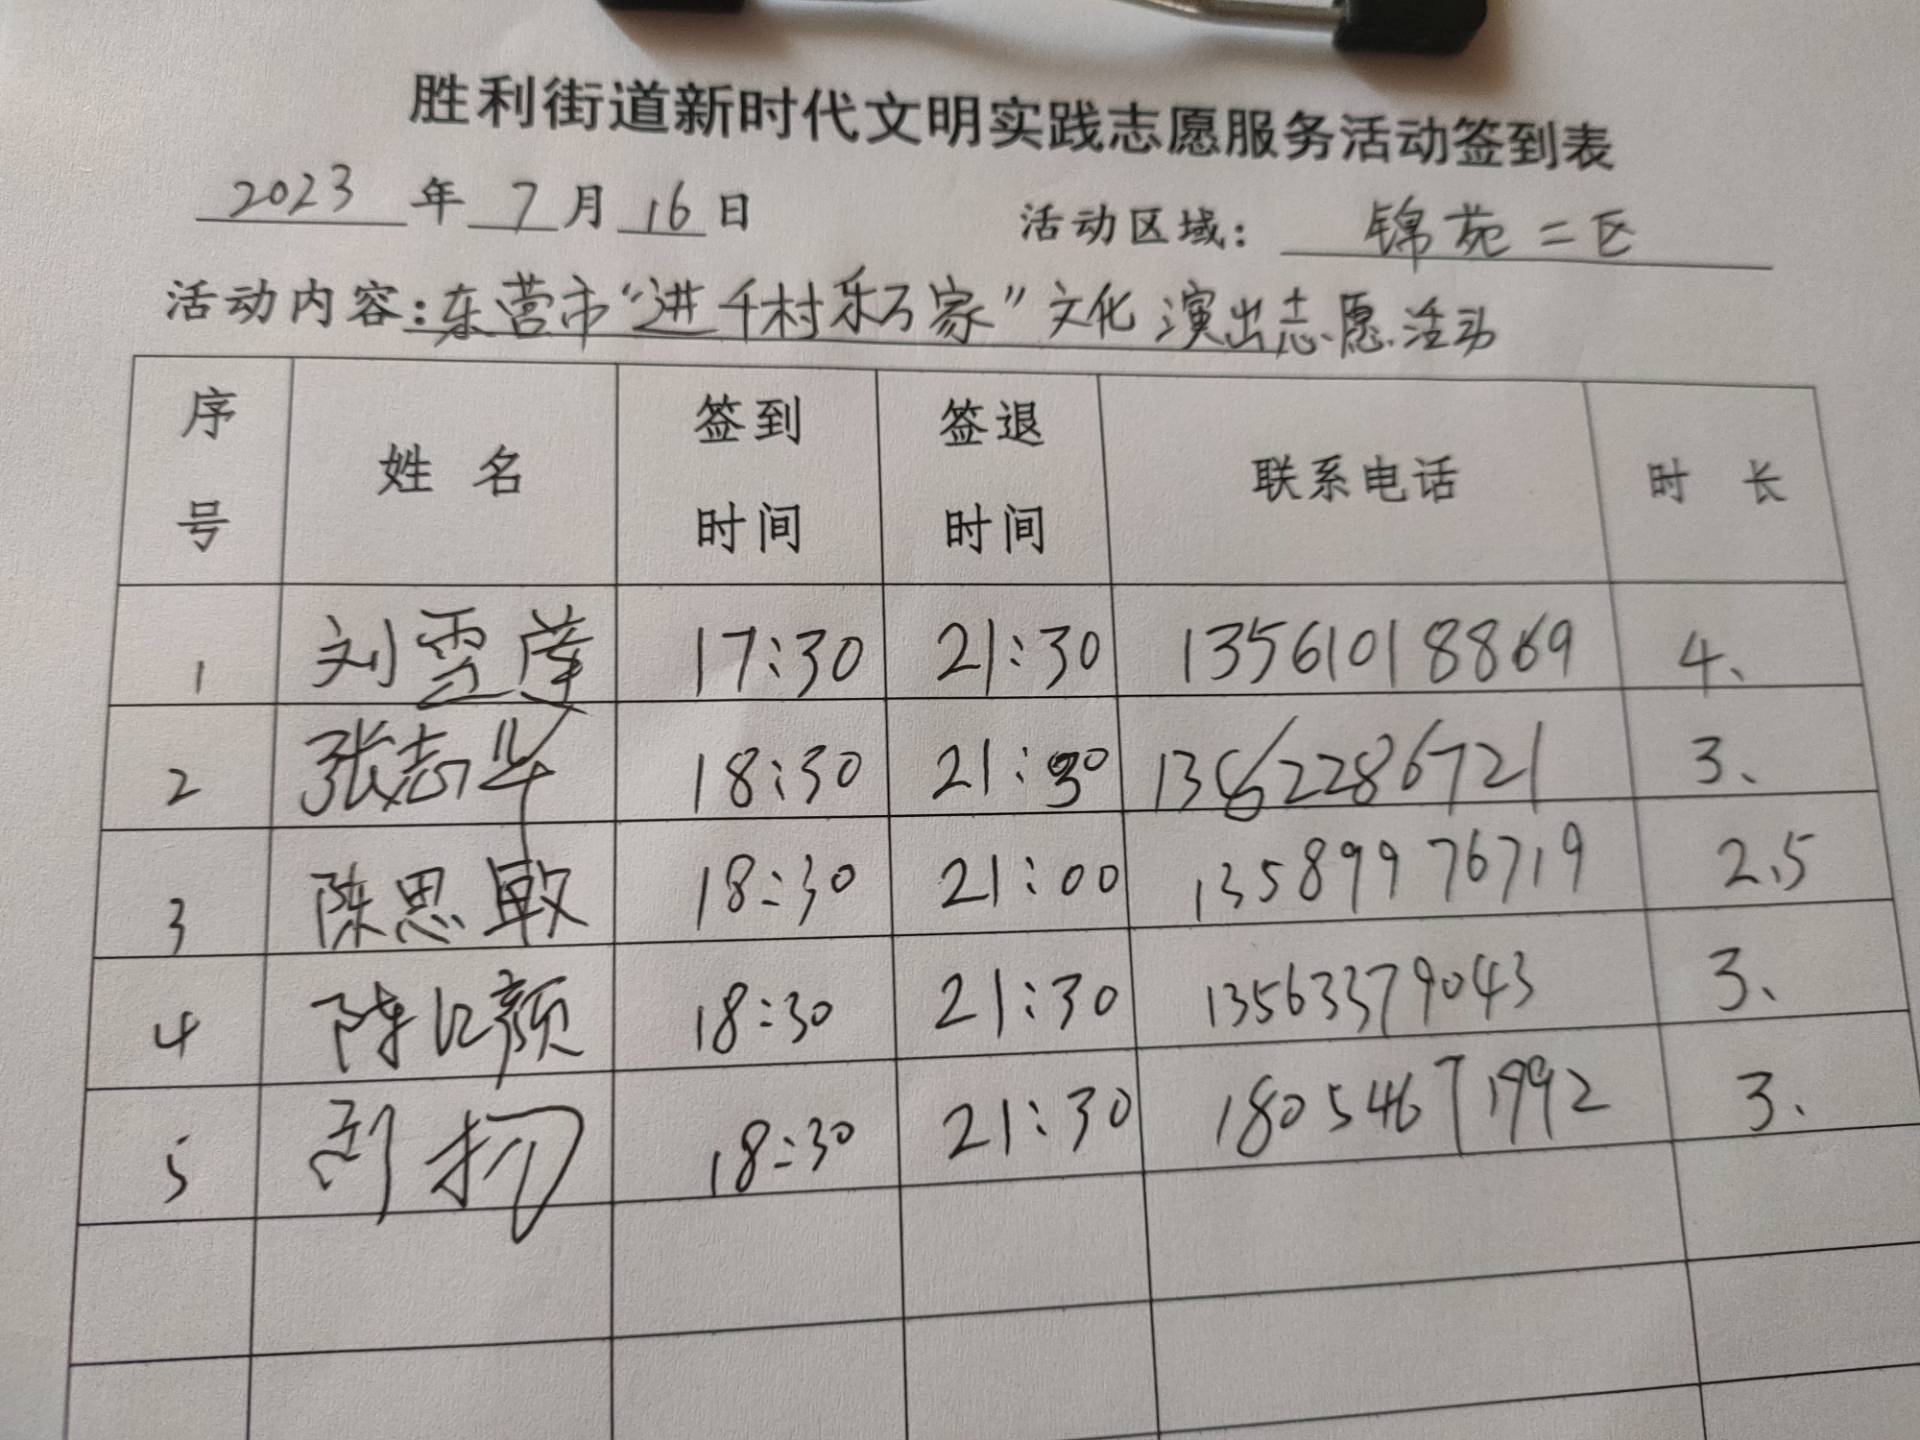 胜利街道新时代文明实践志愿服务活动签到表
2023 年 7 月 16 日 活动区域: 锦苑二区
活动内容:东营市“进千村乐万家”文化演出志愿活动
序号 姓名 签到时间 签退时间 联系电话 时长
1 刘雪莲 17:30 21:30 13561018869 4、
2 张志华 18:30 21:30 13622286721 3、
3 陈思敏 18:30 21:00 13589976719 2.5
4 陈 颜 18:30 21:30 13563379043 3、
5 18:30 21:30 18054671992 3、